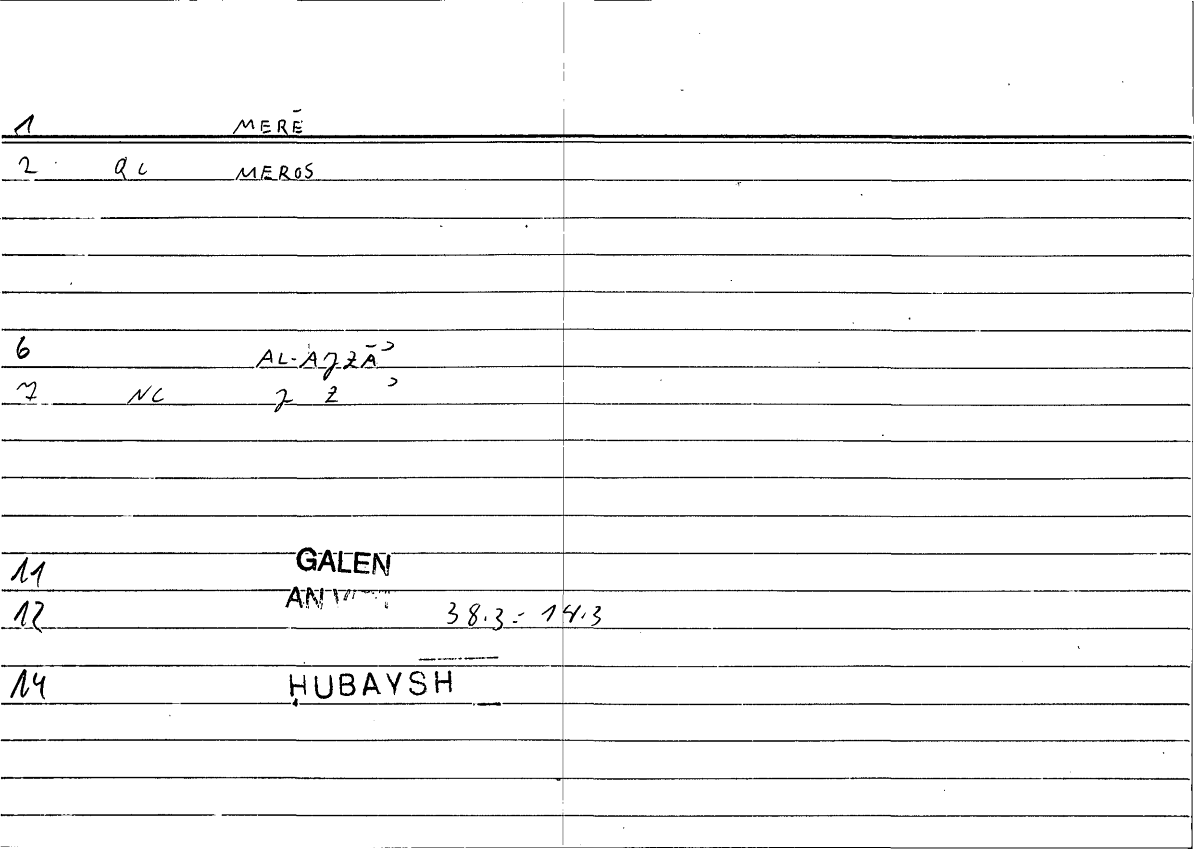 1 MERĒ
2 QC MEROS
6 AL-AJZĀʾ
7 NC J Z ʾ
11 GALEN
12 38.3 = 14.3
14 ḤUBAYSH